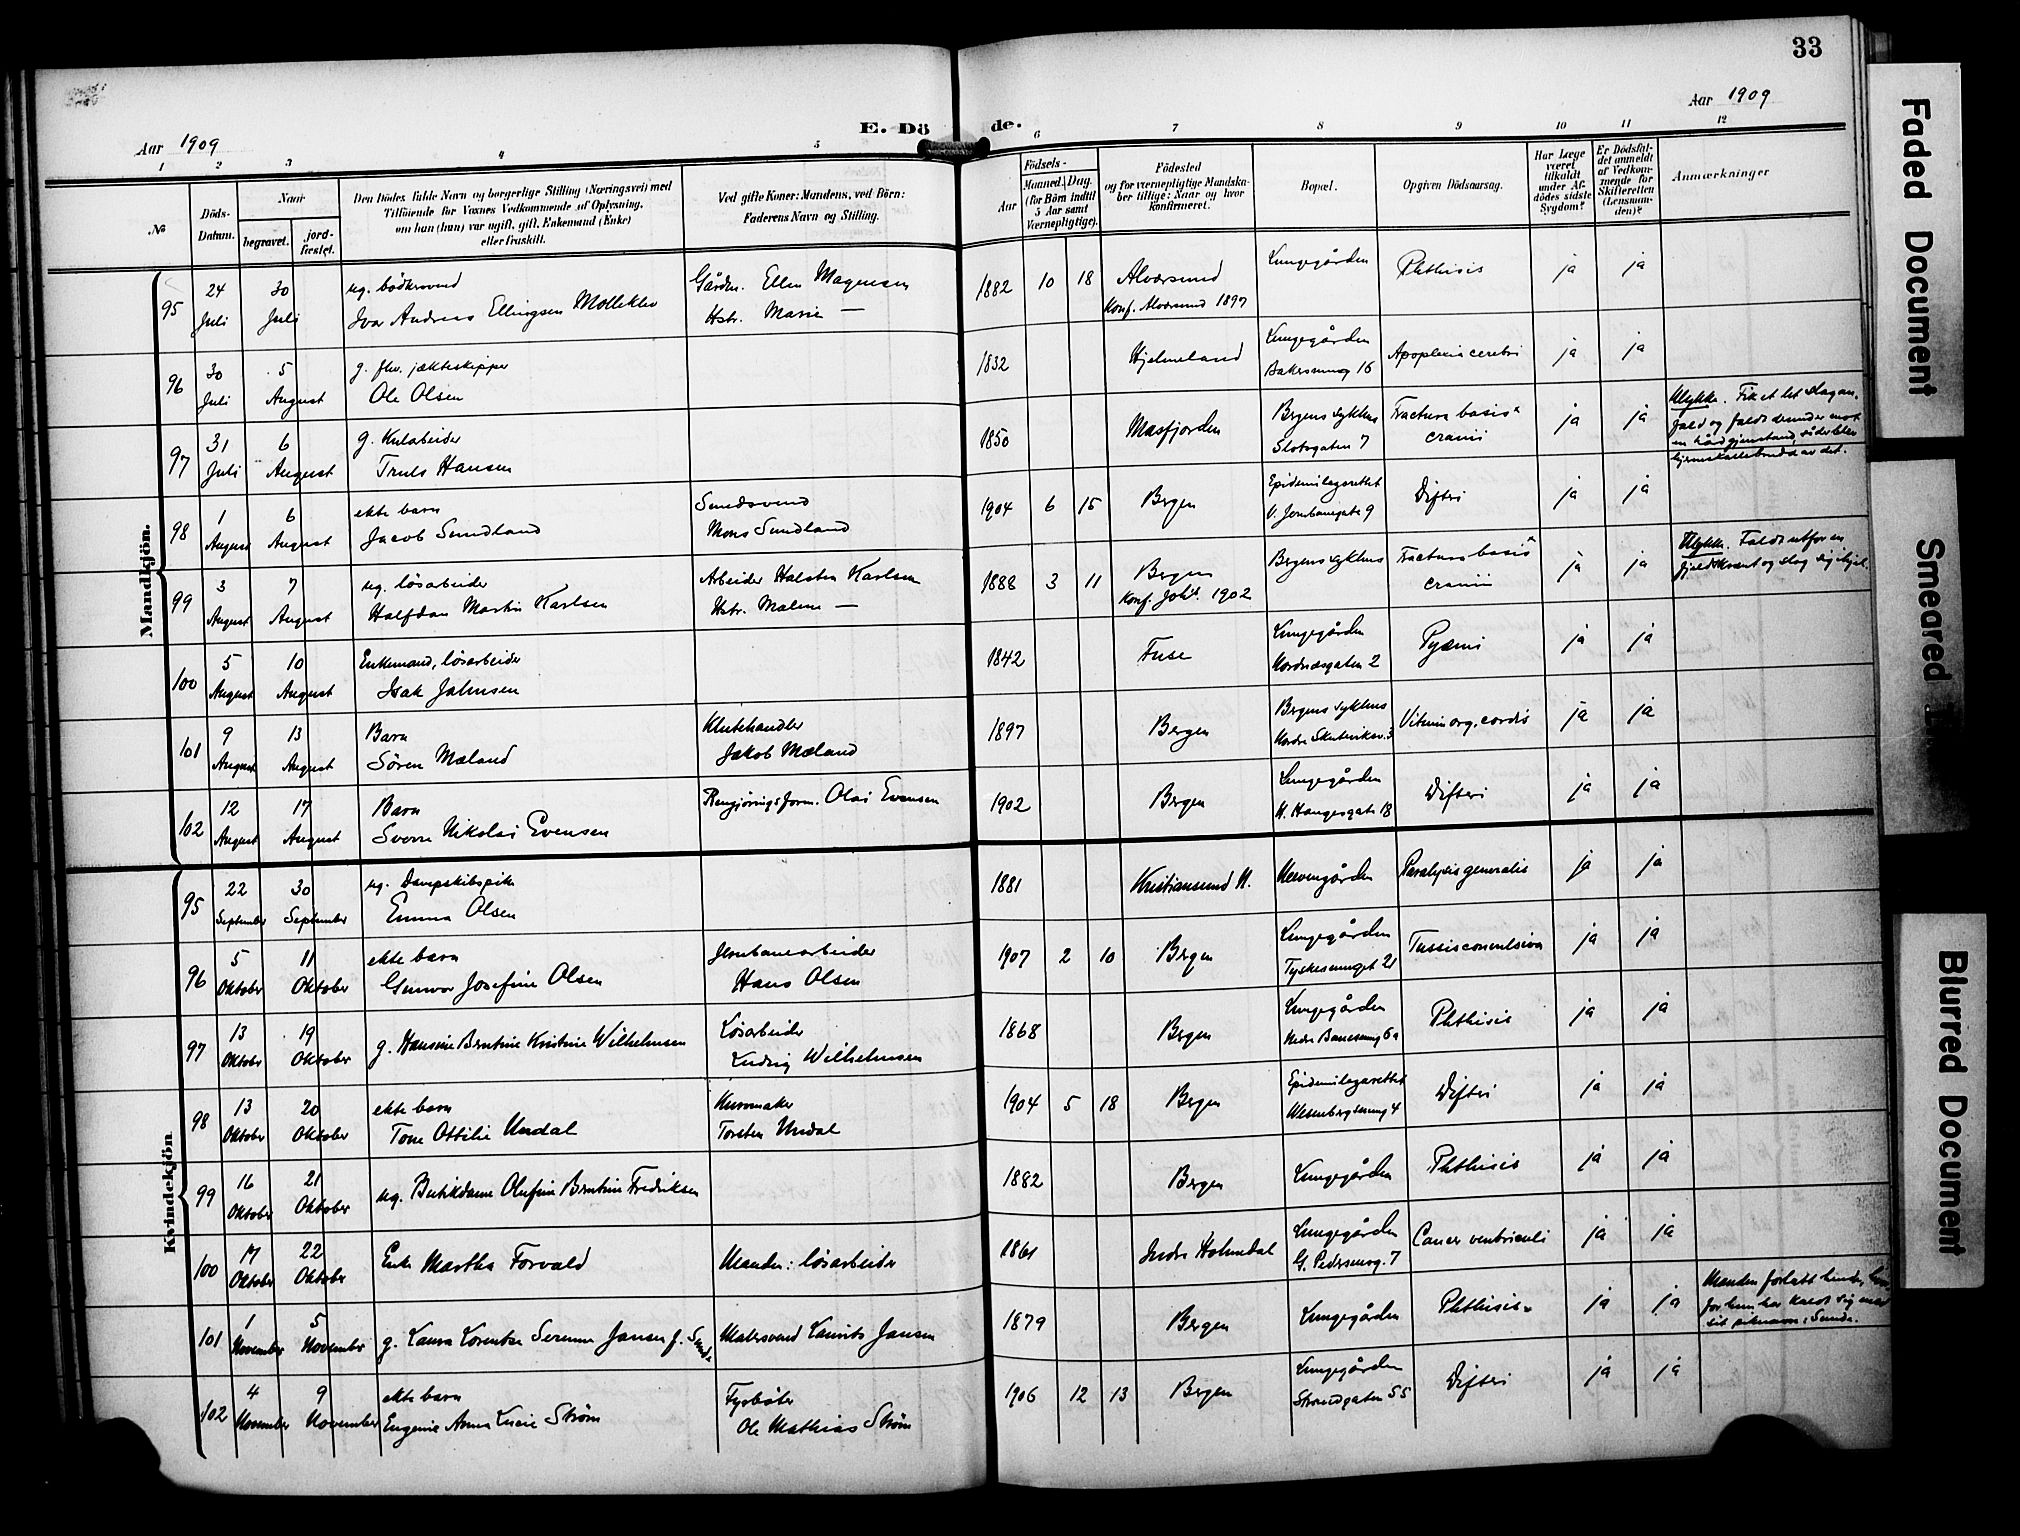 33
Aar 1909
E. Dö de.
Aar 1909
1 2 3 4 5 6 7 8 9 10 11 12
No
Döds-Datum.
Naar
begravet.
jord-fæstet.
Den Dödes fulde Navn og borgerlige Stilling (Næringsvei) med
Tilföiende for Voxnes Vedkommende af Oplysning,
om han (hun) var ugift, gift, Enkemand (Enke)
eller fraskilt.
Ved gifte Koner: Mandens, ved Börn:
Faderens Navn og Stilling.
Födsels-
Aar
Maaned. Dag.
(for Börn indtil
5 Aar samt
Værnepligtige).
Födested
og for værnepligtige Mandska-
ber tillige: Naar og hvor
konfirmeret.
Bopæl.
Opgiven Dödsaarsag.
Har Læge
været
tilkaldt
under Af-
dödes sidste
Sygdom?
Er Dödsfal-
det anmeldt
af Vedkom-
mende for
Skifteretten
(Lensman-
den)?
Anmærkninger
Mandkjön.
95 24 Juli 30 Juli ug. bødkersvend Gårdm. Ellin Magnesen 1882 10 18 Alversund Lungegården Phthisis ja ja
Ivar Andreas Ellingsen Mollekleiv Hstr. Marie — Konf. Alversund 1897
96 30 Juli 5 August g. fhv. jækteskipper 1832 Hjelmeland Lungegården Apoplexia cerebri ja ja
Ole Olsen 16
97 31 Juli 6 August g. Kularbeider 1850 Masfjorden Bergens sykehus Fractura basis ja ja Ulykke. Fik et let slagan-
Truls Hansen Slotsgaten 7 cranii fald og faldt derunder mot
en hård gjenstand,
av det.
98 1 August 6 August ekte barn 1904 6 15 Bergen Epidemilasarettet Difteri ja ja
Jacob Sundland Mons Sundland V. Jernbanegate 9
99 3 August 7 August ug. løsarbeider Arbeider Halsten Karlsen 1888 3 11 Bergen Bergens sykehus Fractura basis ja ja Ulykke. Faldt utfor en
Halfdan Martin Karlsen Hstr. Malene — Konf. Joh.k. 1902 cranii fjeldskrænt og slog sig ihjel.
100 5 August 10 August Enkemand, løsarbeider 1842 Fuse Lungegården Pyæmi ja ja
Isak Johnsen Nordnæsgaten 2
101 9 August 13 August Barn Klutehandler 1897 Bergen Bergens sykehus Vitium org. cordis ja ja
Søren Mæland Jakob Mæland Nordre Skuteviksv. 3
102 12 August 17 August Barn Rengjøringsform. Olai Evensen 1902 Bergen Lungegården Difteri ja ja
Sverre Nikolai Evensen H. Haugesgate 18
Kvindekjön
95 22 September 30 September ug. Dampskibspike 1881 Kristiansund N. Neevengården Paralysis generalis ja ja
Emma Olsen
96 5 Oktober 11 Oktober ekte barn Jernbanearbeider 1907 2 10 Bergen Lungegården Tussis convulsiva ja ja
Gunvor Josefine Olsen Hans Olsen Tyskesmuget 21
97 13 Oktober 19 Oktober g. Hansine Bentine Kristine Wilhelmsen Løsarbeider 1868 Bergen Lungegården Phthisis ja ja
Ludvig Wilhelmsen
98 13 Oktober 20 Oktober ekte barn 1904 5 18 Bergen Epidemilasarettet Difteri ja ja
Tone Ottilie Undal Torsten Undal Wesenbergsmug 4
99 16 Oktober 21 Oktober ug. Butikdame Olufine Bentine Fredriksen 1882 Bergen Lungegården Phthisis ja ja
100 17 Oktober 22 Oktober Enke Martha Forvald Manden: løsarbeider 1861 Indre Holmedal Lungegården Cancer ventriculi ja ja
G. Pedersensg. 7
101 1 November 5 November g. Laura Lorentze Serenne Jansen f. Sunde Malersvend Laurits Jansen 1879 Bergen Lungegården Phthisis ja ja Manden forlatt hende,
for hun har kaldt sig med
sit pikenavn, Sunde.
102 4 November 9 November ekte barn Fyrbøter 1906 12 13 Bergen Lungegården Difteri ja ja
Eugenie Anna Lucie Strøm Ole Mathias Strøm Strandgaten 55
Faded Document
Smeared
Blurred Document